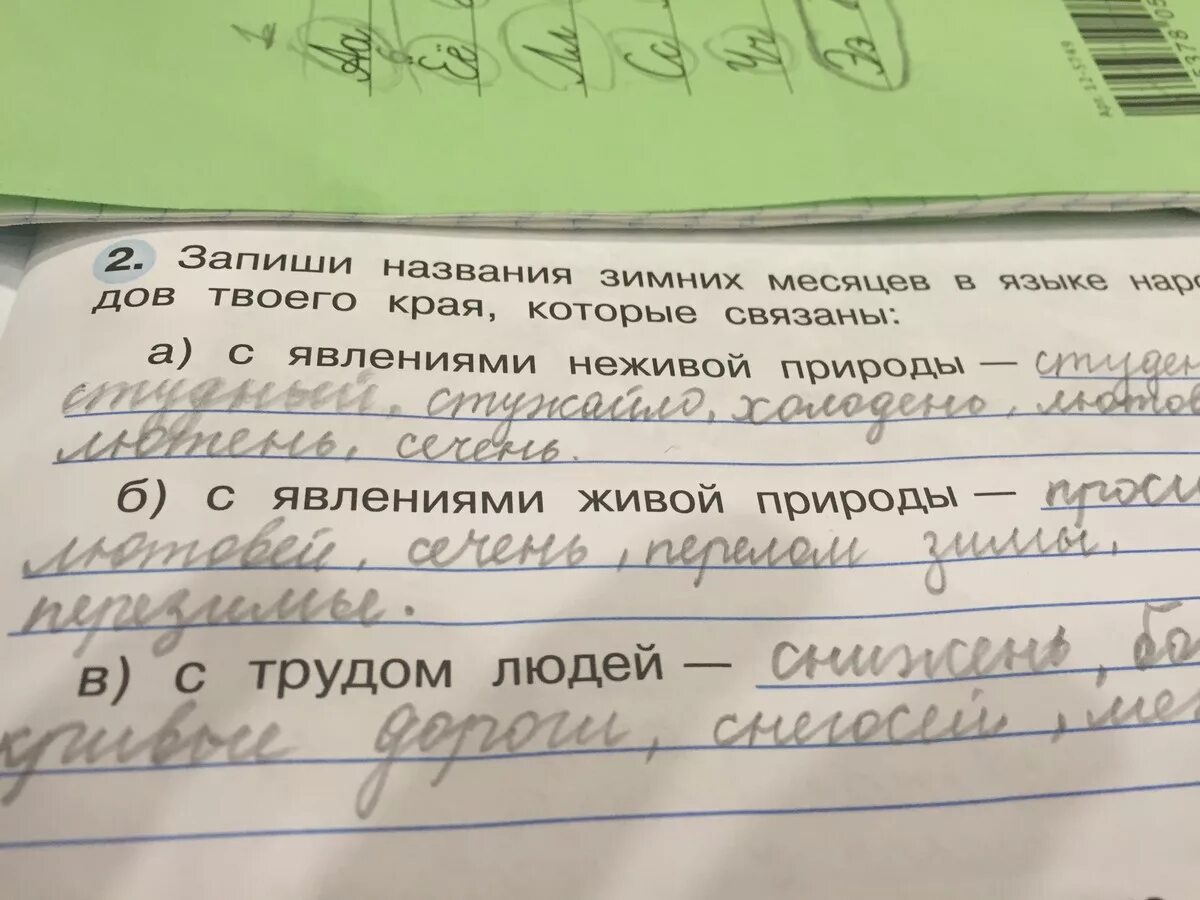 Аа Её Лл Сс Чч Ээ
Арт. 12-5749
2. Запиши названия зимних месяцев в языке наро
дов твоего края, которые связаны:
а) с явлениями неживой природы — студен
студный, стужайло, холодень, лютов
лютень, сечень.
б) с явлениями живой природы — проси
лютовей, сечень, перелом зимы,
перезимье.
в) с трудом людей — снижень, бо
кривые дороги, снегосей, ме